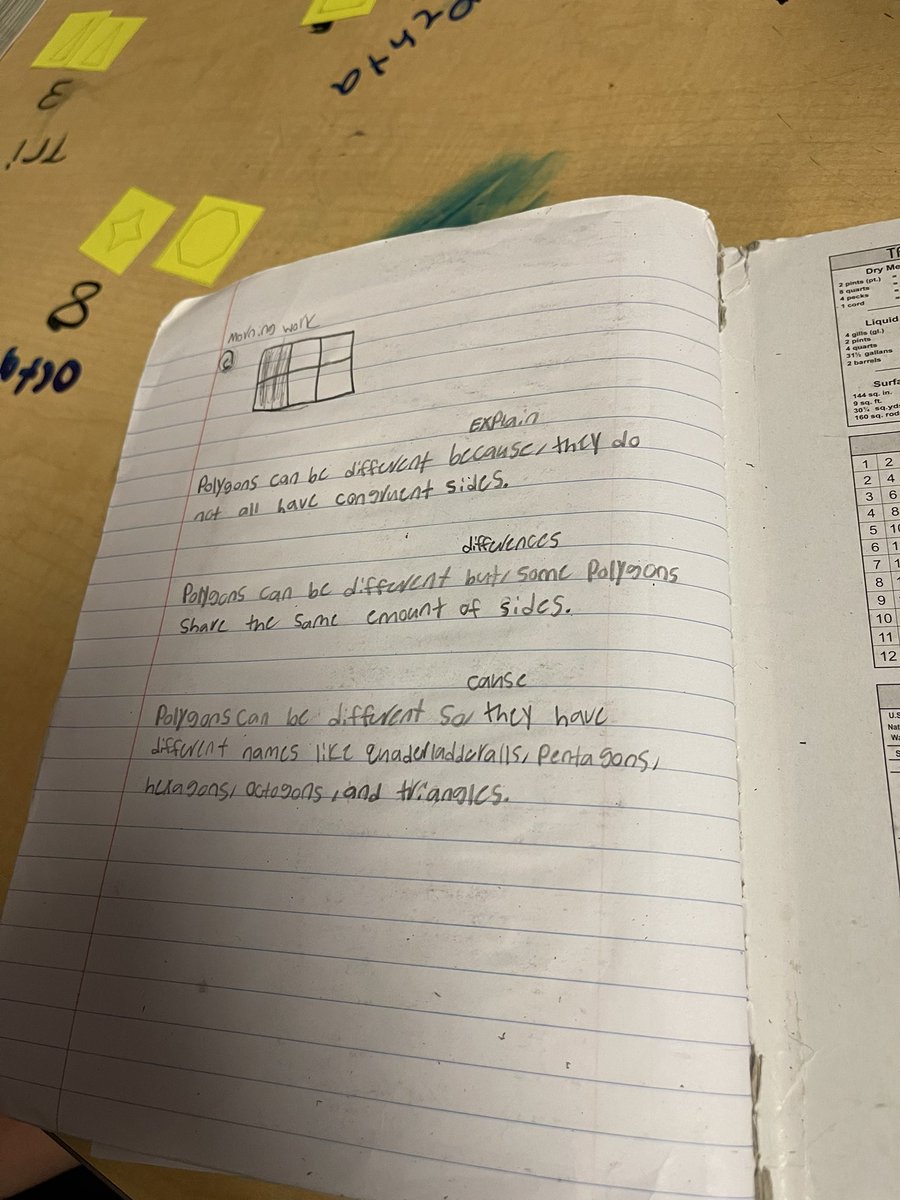 3
Tri
8
octa
Morning work
2
Explain
Polygons can be different because, they do
not all have congruent sides.
differences
Polygons can be different but, some Polygons
share the same emount of sides.
cause
Polygons can be different so, they have
different names like quaderladderalls, pentagons,
hexagons, octagons, and triangles.
Dry Me
2 pints (pt.)
8 quarts
4 pecks
1 cord
Liquid
4 gills (gl.)
2 pints
4 quarts
31½ gallans
2 barrels
Surfa
144 sq. in.
9 sq. ft.
30¼ sq.yds
160 sq. rod
1 2
2 4
3 6
4 8
5 10
6 1
7 1
8
9
10
11
12
U.S
Nat
Wa